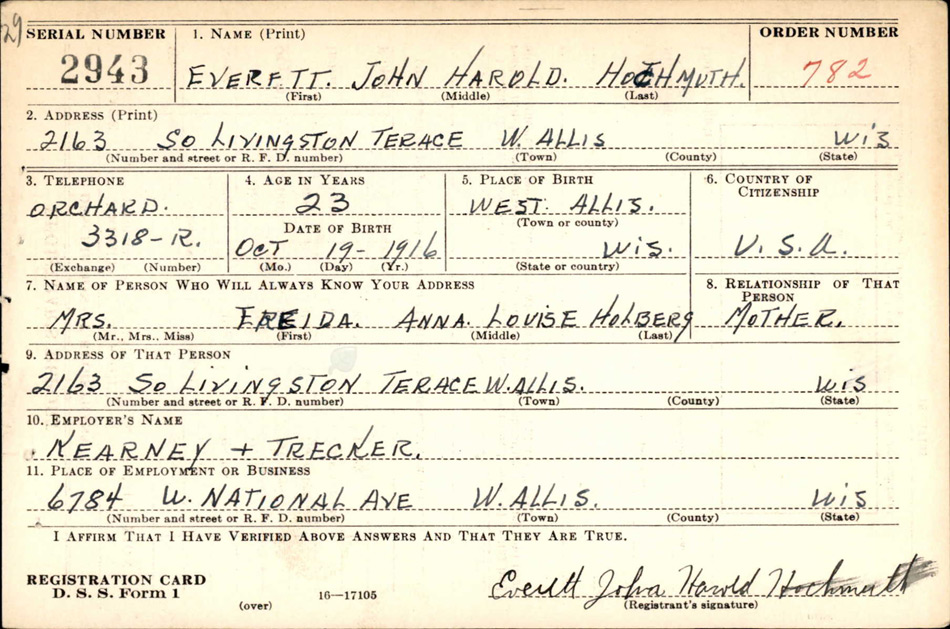 29
SERIAL NUMBER 1. NAME (Print) ORDER NUMBER
2943 EVERETT. JOHN HAROLD. HOCHMUTH. 782
(First) (Middle) (Last)
2. ADDRESS (Print)
2163 SO LIVINGSTON TERACE W. ALLIS WIS
(Number and street or R. F. D. number) (Town) (County) (State)
3. TELEPHONE 4. AGE IN YEARS 5. PLACE OF BIRTH 6. COUNTRY OF CITIZENSHIP
ORCHARD. 23 WEST. ALLIS.
DATE OF BIRTH (Town or county)
3318-R. OCT 19- 1916 WIS. U.S.A.
(Exchange) (Number) (Mo.) (Day) (Yr.) (State or country)
7. NAME OF PERSON WHO WILL ALWAYS KNOW YOUR ADDRESS 8. RELATIONSHIP OF THAT PERSON
MRS. FREIDA. ANNA. LOUISE HOLBERG MOTHER.
(Mr., Mrs., Miss) (First) (Middle) (Last)
9. ADDRESS OF THAT PERSON
2163 SO LIVINGSTON TERACE W. ALLIS. WIS
(Number and street or R. F. D. number) (Town) (County) (State)
10. EMPLOYER'S NAME
KEARNEY + TRECKER.
11. PLACE OF EMPLOYMENT OR BUSINESS
6784 W. NATIONAL AVE W. ALLIS. WIS
(Number and street or R. F. D. number) (Town) (County) (State)
I AFFIRM THAT I HAVE VERIFIED ABOVE ANSWERS AND THAT THEY ARE TRUE.
REGISTRATION CARD Everett John Harold Hochmuth
D. S. S. Form 1 (over) 16—17105 (Registrant's signature)